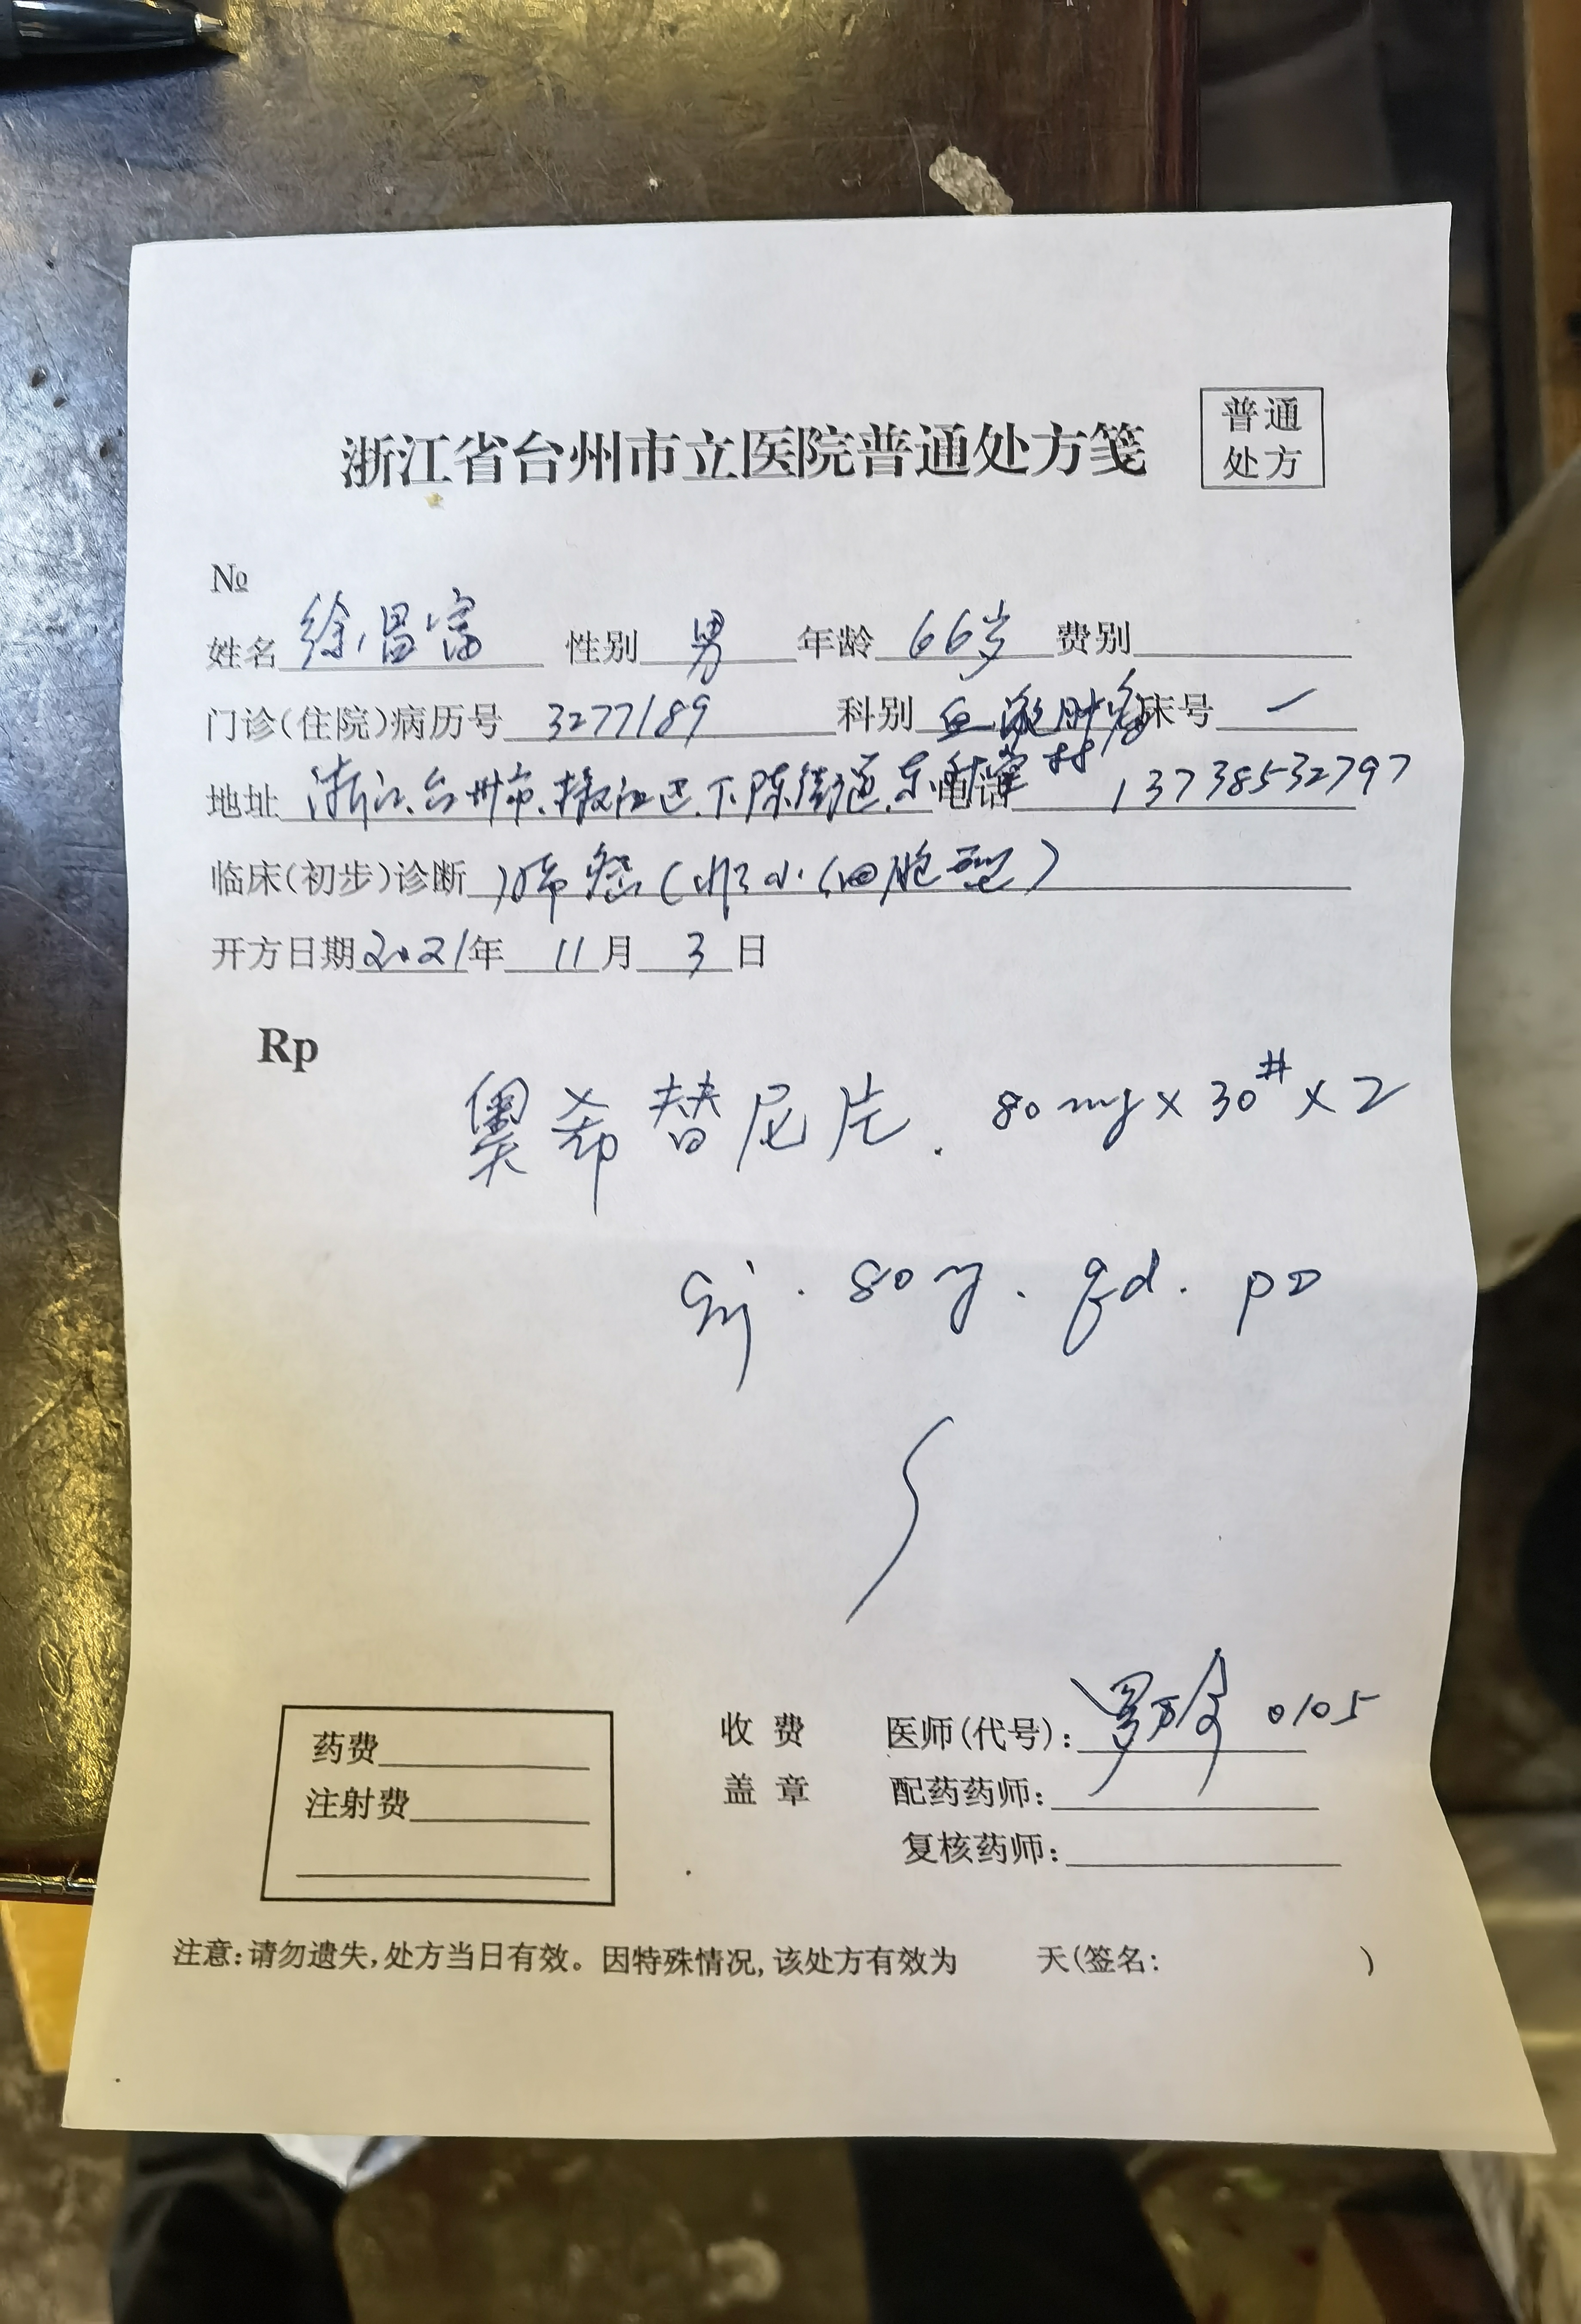 浙江省台州市立医院普通处方笺
普通
处方
№
姓名 徐昌富 性别 男 年龄 66岁 费别
门诊(住院)病历号 3277189 科别 血液肿瘤 床号 一
地址 浙江台州市椒江区下陈街道东 村 电话 13738532797
临床(初步)诊断 肺癌(非小细胞型)
开方日期 2021年 11月 3日
Rp
奥希替尼片. 80mg×30#×2
Sij. 80mg. qd. po
药费
注射费
收费
盖章
医师(代号): 罗 0105
配药药师:
复核药师:
注意:请勿遗失,处方当日有效。因特殊情况,该处方有效为 天(签名: )